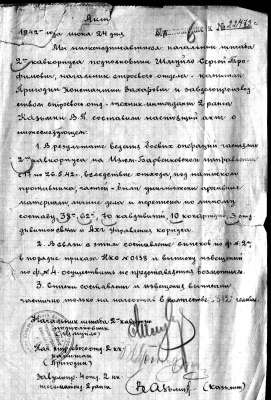 Акт
№ 22472 с.
1942 года июня 24 дня
Мы нижеподписавшиеся начальник штаба
2 кавкорпуса подполковник Шмуйло Сергей Тро-
фимович, начальник строевого отдела - капитан
Пригодин Константин Захарович и заведделопроизвод
ством строевого отд. - техник интендант 2 ранга
Казьмин В.Я. составили настоящий акт о
нижеследующем:
1. В результате ведения боевых операций частями
2 кавкорпуса на Изюм-Барвенковском направлении
с 17 по 26.5.42. вследствие отхода, под натиском
противника, частей - были уничтожены архивные
материалы личные дела и переписка по личному
составу, 38, 62, 70 кавдивизий, 10 конартдив,
дивизионов и Ахч управления корпуса.
2. В связи с этим составление списков по ф. №2
в порядке приказа НКО №0138 и выписку извещений
по ф. №4 - осуществить не представляется возможным.
3. Списки составлены и извещения выписаны
частично только на налсостав в количестве
Начальник штаба 2 кавкор
подполковник
(Шмуйло)
Нач. строевого отд. 2 кк
капитан
(Пригодин)
Завделопр. 4 отд. 2 кк
техинтендант 2 ранга
(Казьмин)